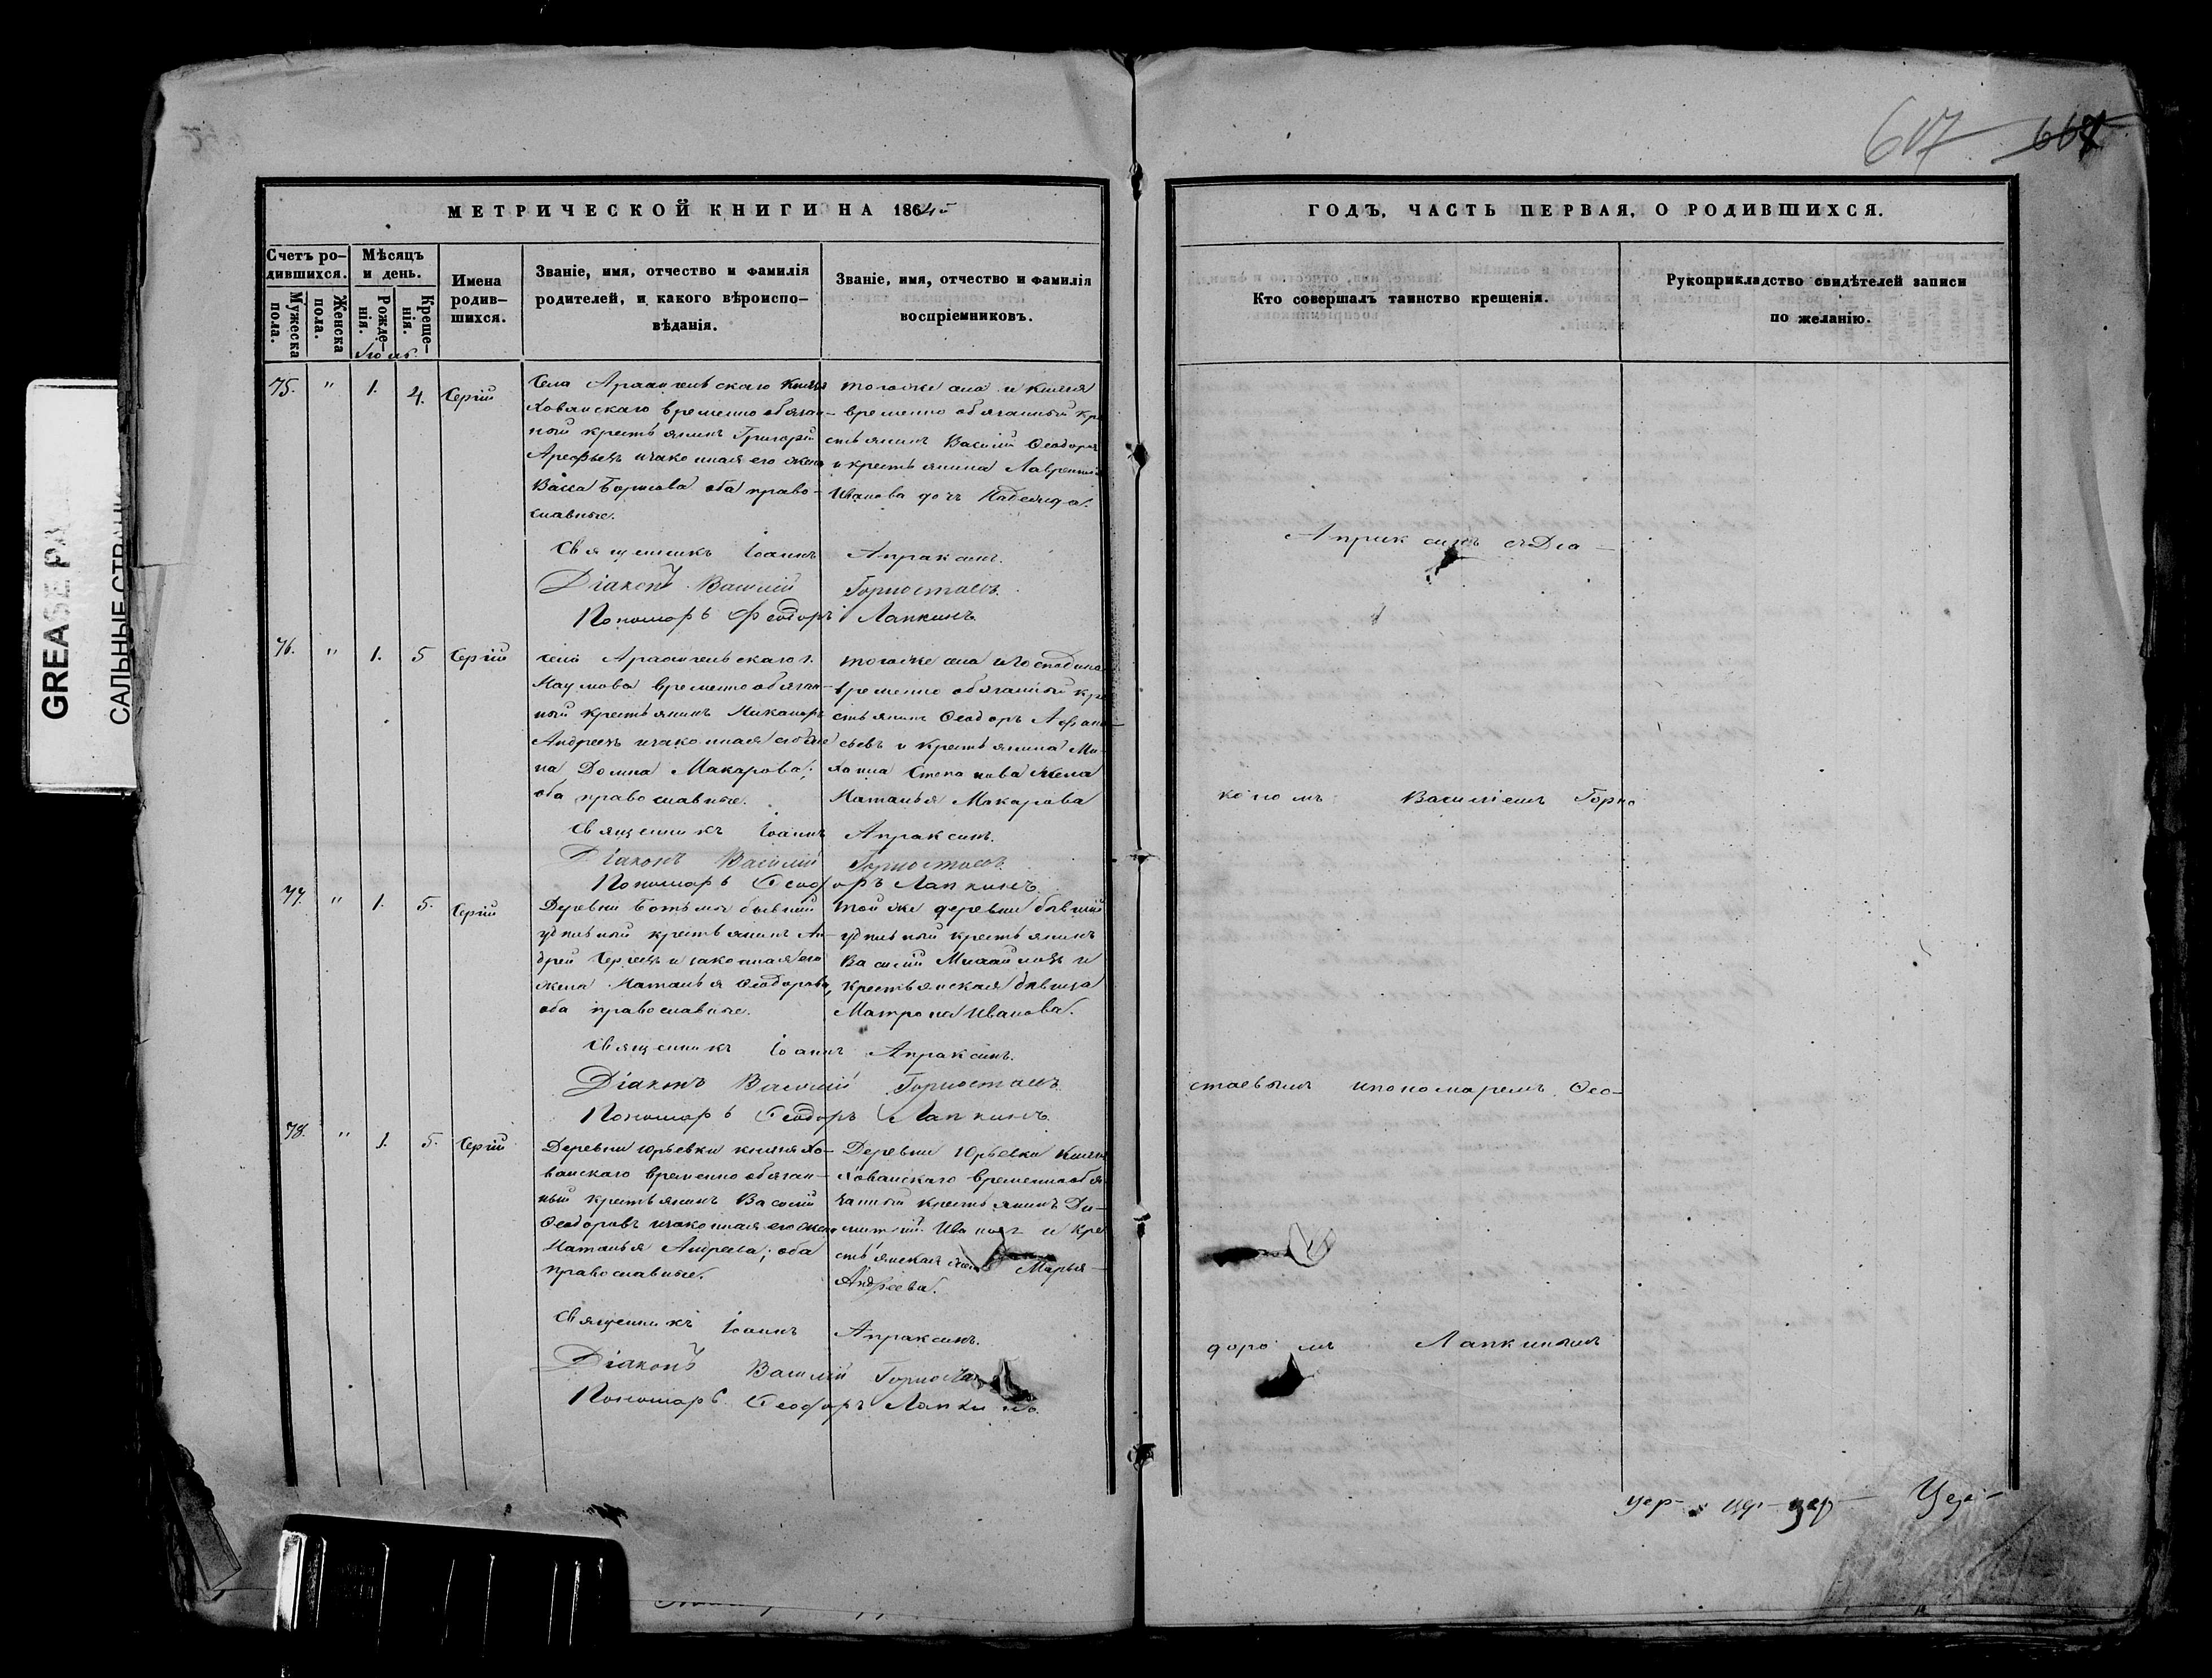 617 668
GREASE
САЛЬНЫЕ
МЕТРИЧЕСКОЙ КНИГИ НА 1864й
Счетъ ро-
дившихся.
Мужеска
пола.
Женска
пола.
Мѣсяцъ
и день.
Рожде-
нія.
Креще-
нія.
Имена
родив-
шихся.
Званіе, имя, отчество и фамилія
родителей, и какого вѣроиспо-
вѣданія.
Званіе, имя, отчество и фамилія
воспріемниковъ.
Іюль.
75. " 1. 4. Сергій
Села Архангельскаго Князя
Хованскаго временно обязан-
ный крестьянинъ Григорій
Арефьевъ и законная его жена
Васса Борисова оба право-
славные.
тогоже села и Князя
временно обязанный кре
стьянинъ Василій Ѳеодоровъ
и крестьянина Лаврентія
Иванова дочь Надежда.
Священникъ Іоаннъ Апраксинъ.
Діаконъ Василій Горностаевъ.
Пономарь Феодоръ Лапкинъ.
76. " 1. 5 Сергій
села Архангельскаго г.
Наумова временно обязан-
ный крестьянинъ Никаноръ
Андреевъ и законная его же
на Домна Макарова;
оба православные.
тогоже села и Господина
временно обязанный кре
стьянинъ Ѳеодоръ Афана-
сьевъ и крестьянина Ми-
хаила Степанова жена
Наталья Макарова
Священникъ Іоаннъ Апраксинъ.
Діаконъ Василій Горностаевъ.
Пономарь Ѳеодоръ Лапкинъ.
77. " 1. 5. Сергій
Деревни Ботьмы бывшій
удѣльный крестьянинъ Ан-
дрей Сергеевъ и законная его
жена Наталья Ѳеодорова,
оба православные.
той же деревни бывшій
удѣльный крестьянинъ
Василій Михайловъ и
крестьянская дѣвица
Матрона Иванова.
Священникъ Іоаннъ Апраксинъ.
Діаконъ Василій Горностаевъ.
Пономарь Ѳеодоръ Лапкинъ.
78. " 1. 5. Сергій
Деревни Юрьевки князя Хо-
ванскаго временно обязан-
ный крестьянинъ Василій
Ѳеодоровъ и законная его жена
Наталья Андреева; оба
православные.
Деревни Юрьевки Князя
Хованскаго временно обя
занный крестьянинъ Ди-
митрій Ивановъ и кре
стьянская Марья
Андреева.
Священникъ Іоаннъ Апраксинъ.
Діаконъ Василій
Пономарь Ѳеодоръ Лапкинъ.
ГОДЪ, ЧАСТЬ ПЕРВАЯ, О РОДИВШИХСЯ.
Кто совершалъ таинство крещенія.
Рукоприкладство свидѣтелей записи
по желанію.
Апраксинъ съ Діа-
кономъ Василіемъ Горно
стаевымъ и пономаремъ Ѳео-
доромъ Лапкинымъ
цер- цер- цер- Цер-